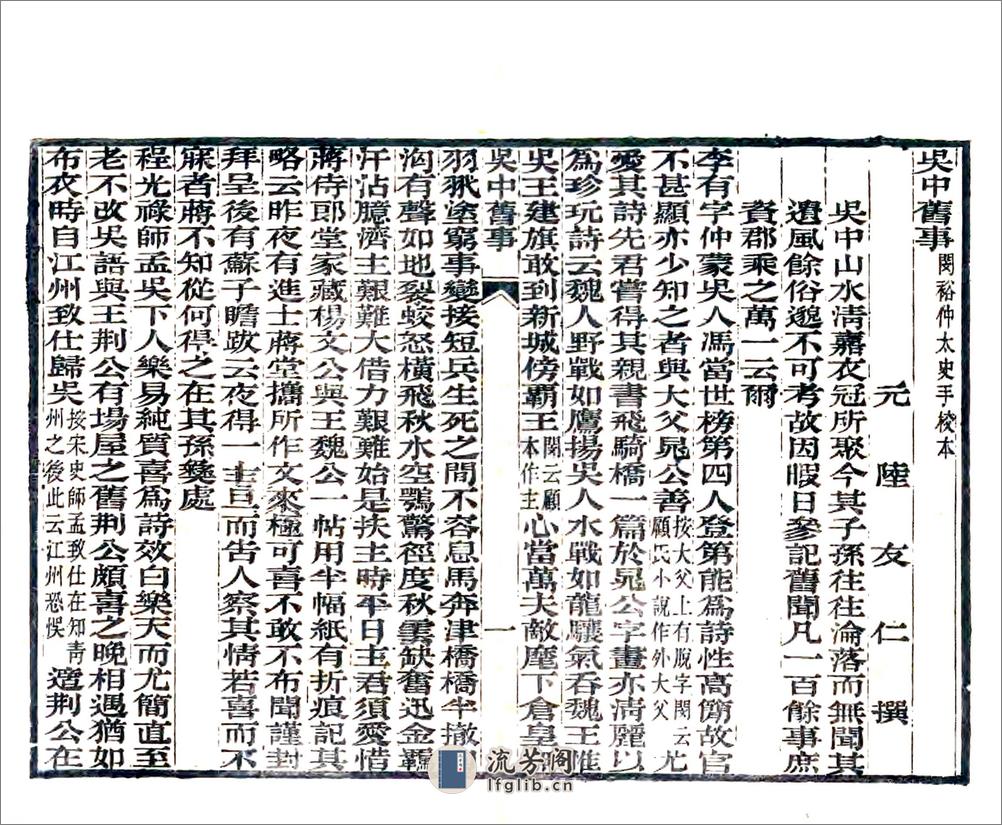 吳中舊事 閔裕仲太史手校本
元 陸友仁 撰
吳中山水清嘉衣冠所聚今其子孫往往淪落而無聞其
遺風餘俗邈不可考故因暇日參記舊聞凡一百餘事庶
資郡乘之萬一云爾
李有字仲蒙吳人馮當世榜第四人登第能爲詩性高簡故官
不甚顯亦少知之者與大父晁公善按大父上有脫字閔云顧氏小說作外大父尤
愛其詩先君嘗得其親書飛騎橋一篇於晁公字畫亦清麗以
爲珍玩詩云魏人野戰如鷹揚吳人水戰如龍驤氣吞魏王惟
吳王建旗敢到新城傍霸王閔云顧本作主心當萬夫敵麾下倉皇無
吳中舊事 一
羽翼塗窮事變接短兵生死之間不容息馬奔津橋橋半撤
洶有聲如地裂蛟怒橫飛秋水空鶚驚徑度秋雲缺奮迅金羈
汗沾臆濟主艱難大借力艱難始是扶主時平日主君須愛惜
蔣侍郎堂家藏楊文公與王魏公一帖用半幅紙有折痕記其
略云昨夜有進士蔣堂攜所作文來極可喜不敢不布聞謹封
拜呈後有蘇子瞻跋云夜得一士旦而告人察其情若喜而不
寐者蔣不知從何得之在其孫彝處
程光祿師孟吳下人樂易純質喜爲詩效白樂天而尤簡直至
老不改吳語與王荆公有場屋之舊荆公頗喜之晚相遇猶如
布衣時自江州致仕歸吳按宋史師孟致仕在知青州之後此云江州恐悞適荆公在
流芳閣
lfglib.cn